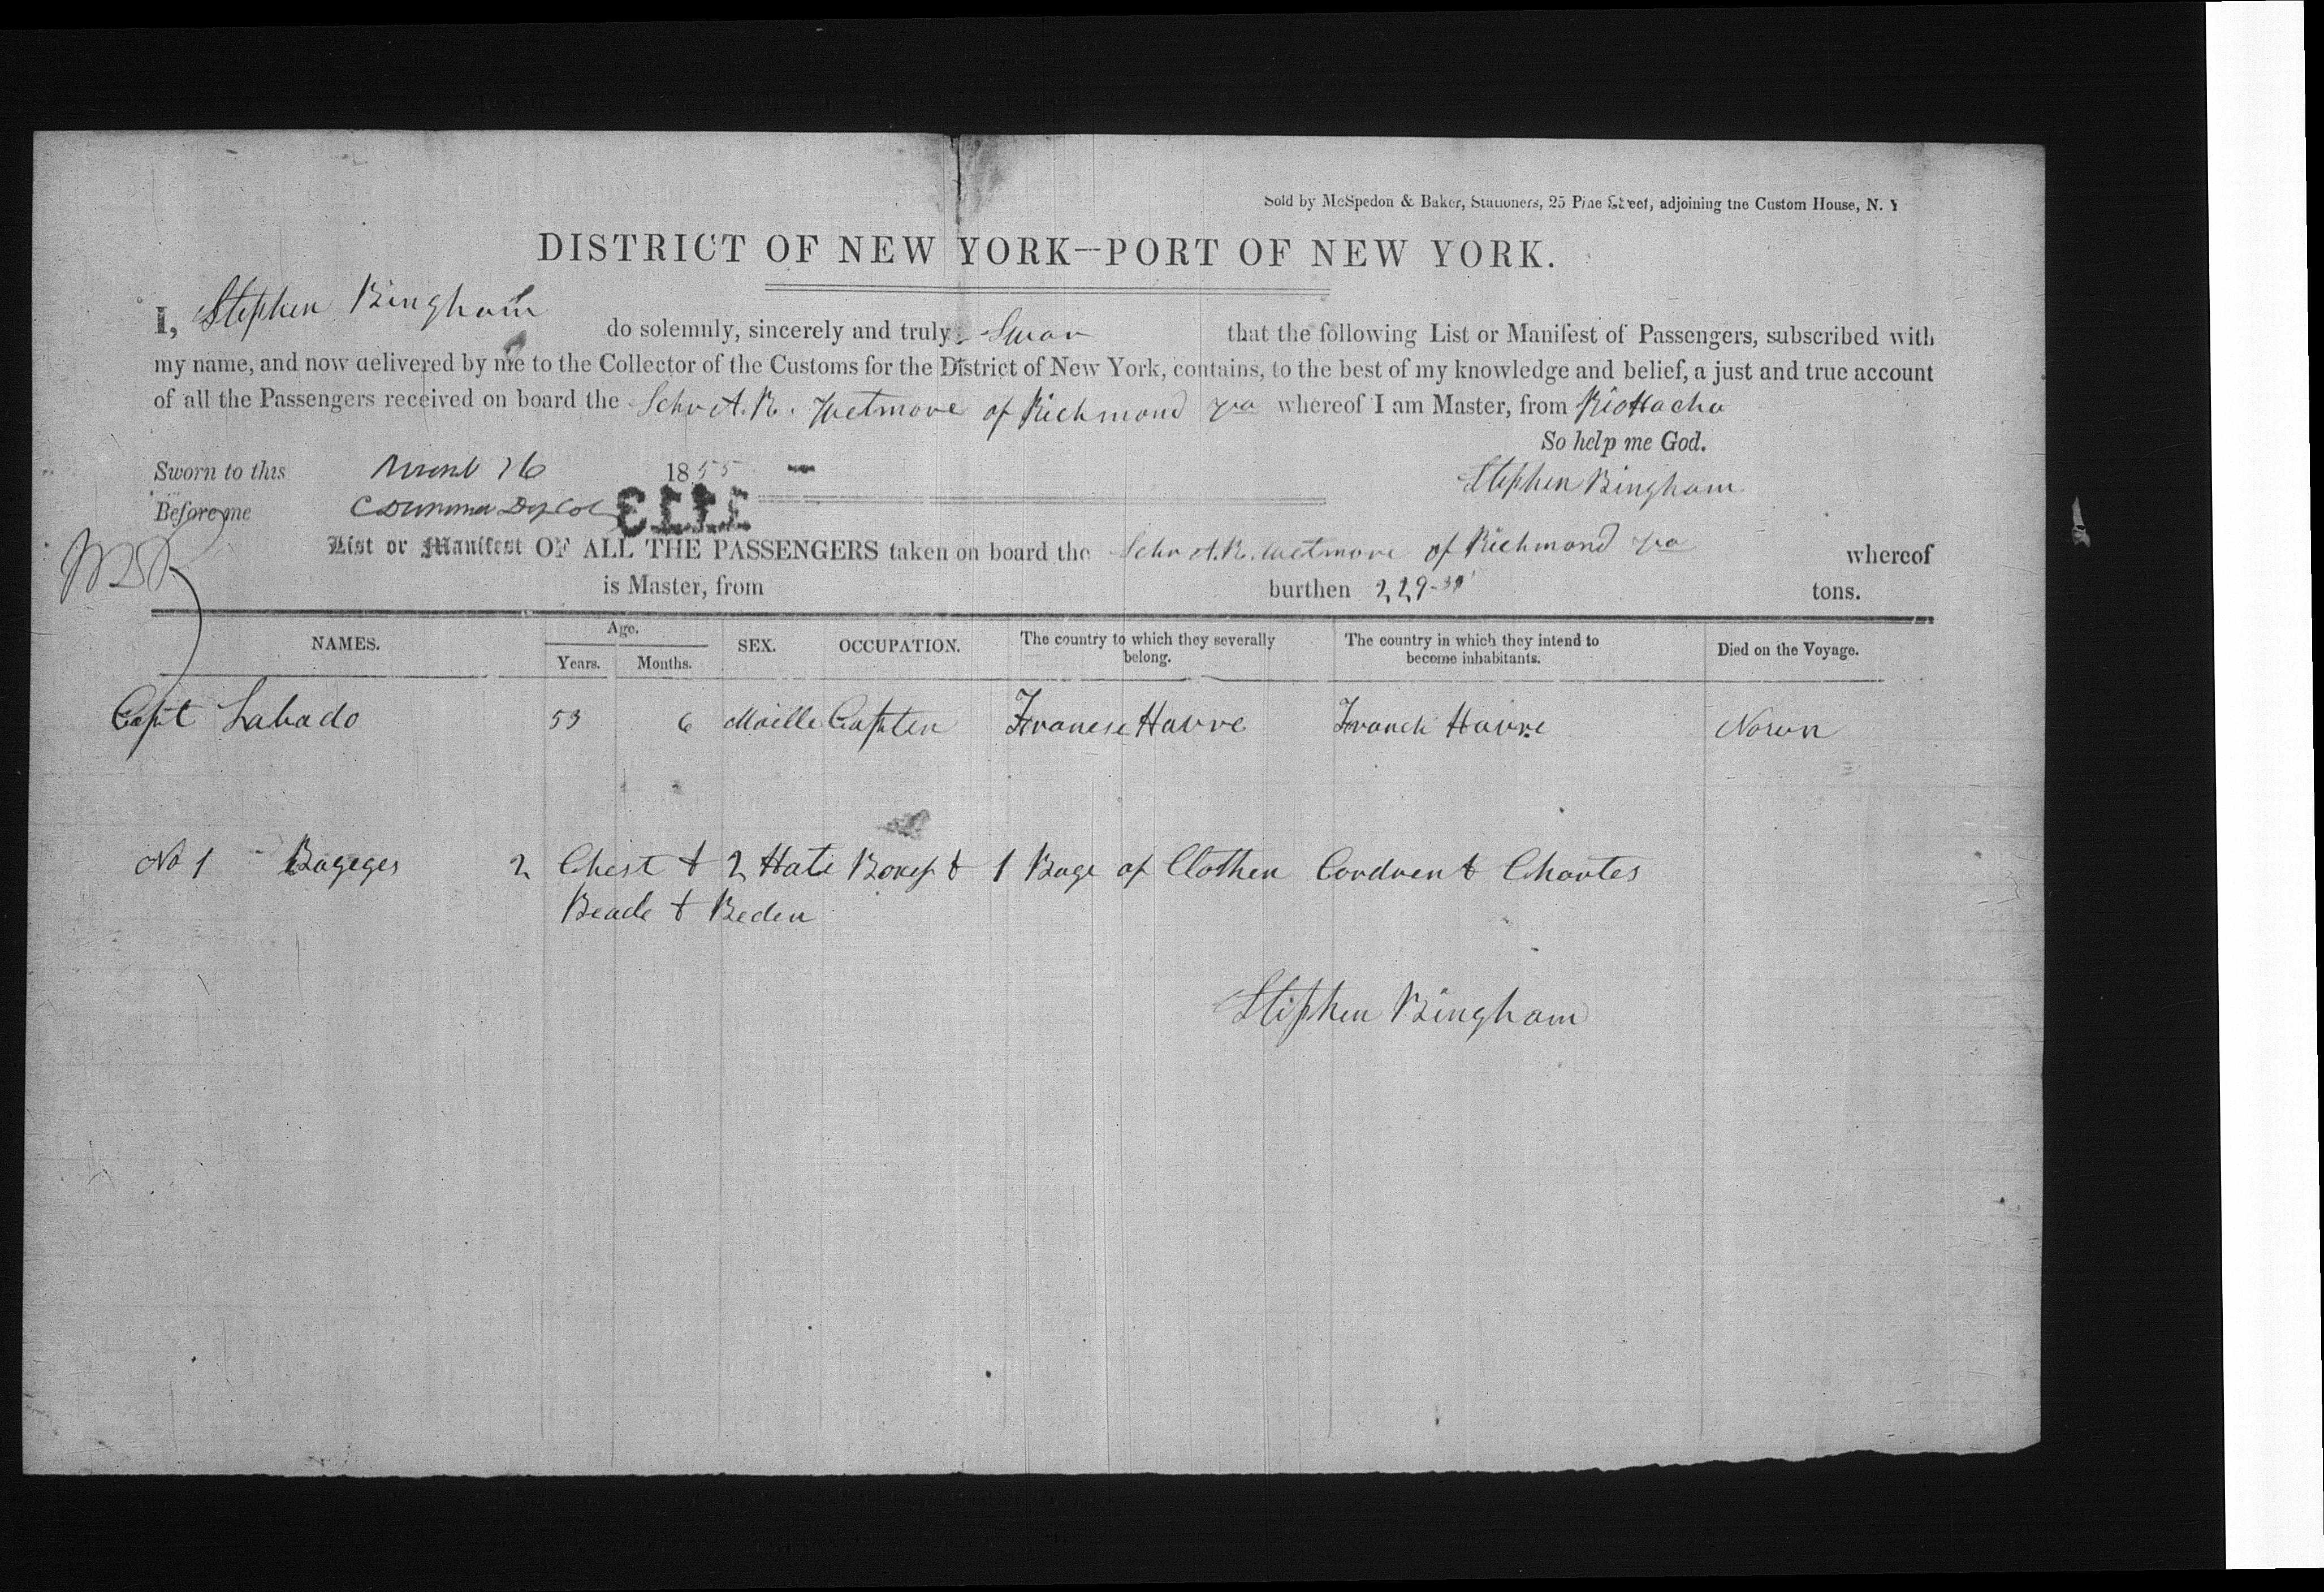 Sold by McSpedon & Baker, Stationers, 25 Pine Street, adjoining the Custom House, N. Y
DISTRICT OF NEW YORK—PORT OF NEW YORK.
I, Stephen Bingham do solemnly, sincerely and truly Swar that the following List or Manifest of Passengers, subscribed with
my name, and now delivered by me to the Collector of the Customs for the District of New York, contains, to the best of my knowledge and belief, a just and true account
of all the Passengers received on board the Schr A. R. Wetmore of Richmond va whereof I am Master, from Rio Hacha
So help me God.
Sworn to this 26 1855
Stephen Bingham
Before me Dep Col
List or Manifest OF ALL THE PASSENGERS taken on board the Schr A. R. Wetmore of Richmond va whereof
is Master, from burthen 229 tons.
NAMES. Age. Years. Months. SEX. OCCUPATION. The country to which they severally belong. The country in which they intend to become inhabitants. Died on the Voyage.
Capt Labado 53 6 Maille Capten Franese Havre Franch Havre Norun
No 1 Bageges 2 Chest & 2 Hate Boxes & 1 Bage of Clothen & Chartes
Beade & Beden
Stephen Bingham